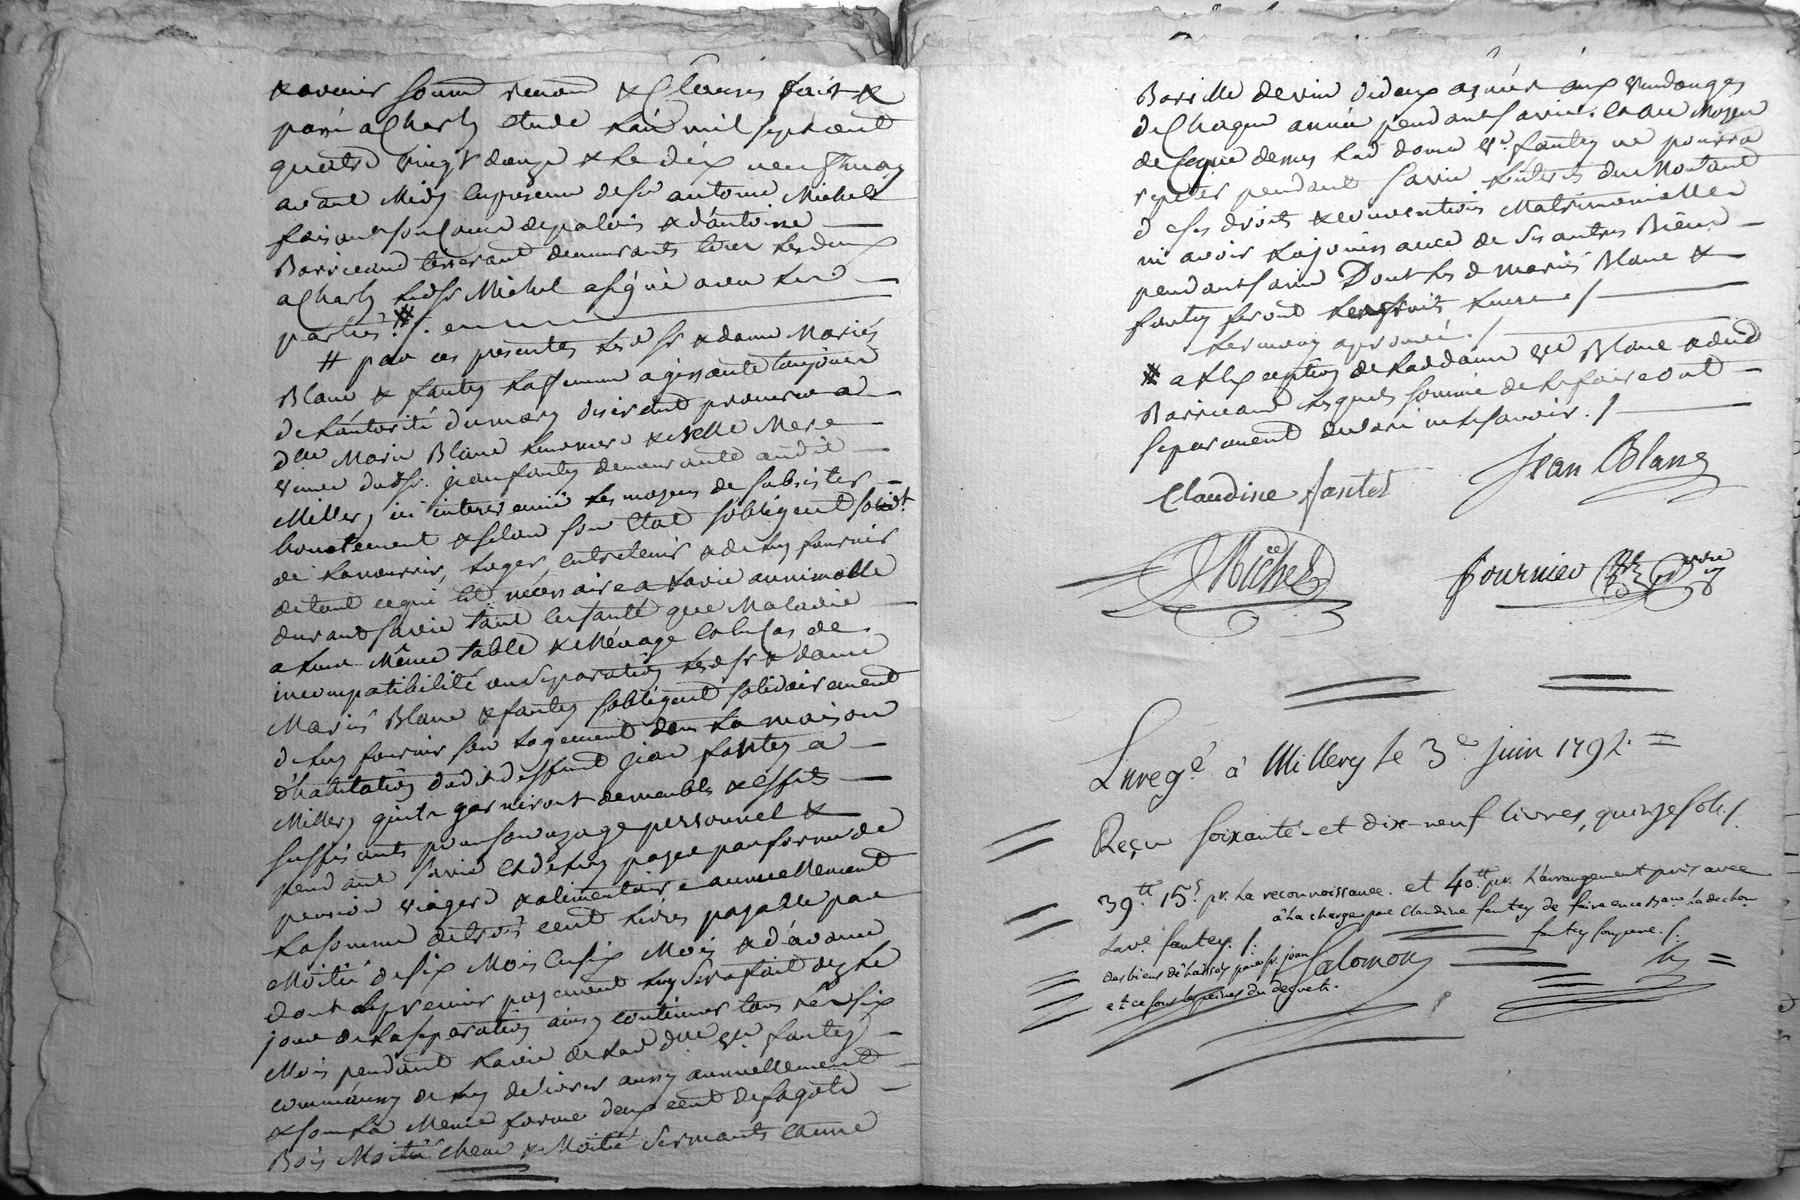 & avenir soumis renon & Clauses fait &
passé a Charly etude L'an mil sept cent
quatre vingt douze & Le dix neuf may
avant Midy en presence de Sr antoine Michel
faisant son cours de palais & d'antoine
Barriccand tisserant demeurants tous Les deux
a Charly Ledsr Michel a signé avec Les d
parties ⌗ /.
⌗ par ces presentes Lesdsr & dame Mariés
Blanc & fantey La femme agissante toujours
de L'autorité dumary desirant procurer a
dlle Marie Blanc Leur mere & belle Mere
veuve dudsr. jean fantey demeurante audit
Millery ici intervenüe Les moyens de subsister
honetement & selon son Etat s'obligent solidt.
de La nourrir, Loger, entretenir & de luy fournir
de tout ce qui Est nécessaire a La vie annimalle
durant sa vie tant en santé que Maladie
a Leur Même table & Ménage et en Cas de
incompatibilité ou Séparation Lesdsr & dame
Mariés Blanc & fantey s'obligent solidairement
de luy fournir son Logement dans La maison
d'habitation dudit deffunt jean fantey a
Millery qu'ils garniront de meubles & Effets
suffisants pour son uzage personnel &
pendant sa vie et de luy payer par forme de
pension viagere & alimentaire annuellement
La somme de trois cent Livres payable par
Moitié de six Mois en six Mois & d'avance
dont Le premier payement luy sera fait dez Le
jour de La separation ainsy continuer tous Les six
Mois pendant La vie de Lad dme ve fantey
comm'aussy de luy delivrer aussy annuellement
& sous La Meme forme deux cent de fagots
Bois Moitié Chene & Moitié Sermants Et une
Barrille de vin deux aznées aux vendanges
de Chaque année pendant sa vie. Et au Moyen
de ce que dessus Lad dame Ve. fantey ne pourra
repeter pendant sa vie L'interets du Montant
de ses droits & conventions Matrimonialles
ni avoir La jouissance de Ses autres Biens
pendant sa vie Dont Les d mariés Blanc &
fantey feront Les fruits Leurs /
Les mary aprouvé. /
⌗ a L'Exception de Laddame Ve Blanc & dud
Barriccand Lesquels sommé de Le faire ont
separement declaré ne Le savoir. /
Claudine fantet Jean Blanc
Michel fournier
Enregé à Millery le 3e Juin 1792.
Reçu Soixante-et dix-neuf livres, quinze sols /.
39tt 15s pr. La reconnoissance. et 40.tt pr. L'arrangement pris avec
à La charge par Claudine fantey de faire
Lave. fantey. /.
des biens délaissés par sr. jean
fantey son pere. /.
et ce sous les peines du decret.
Salomon